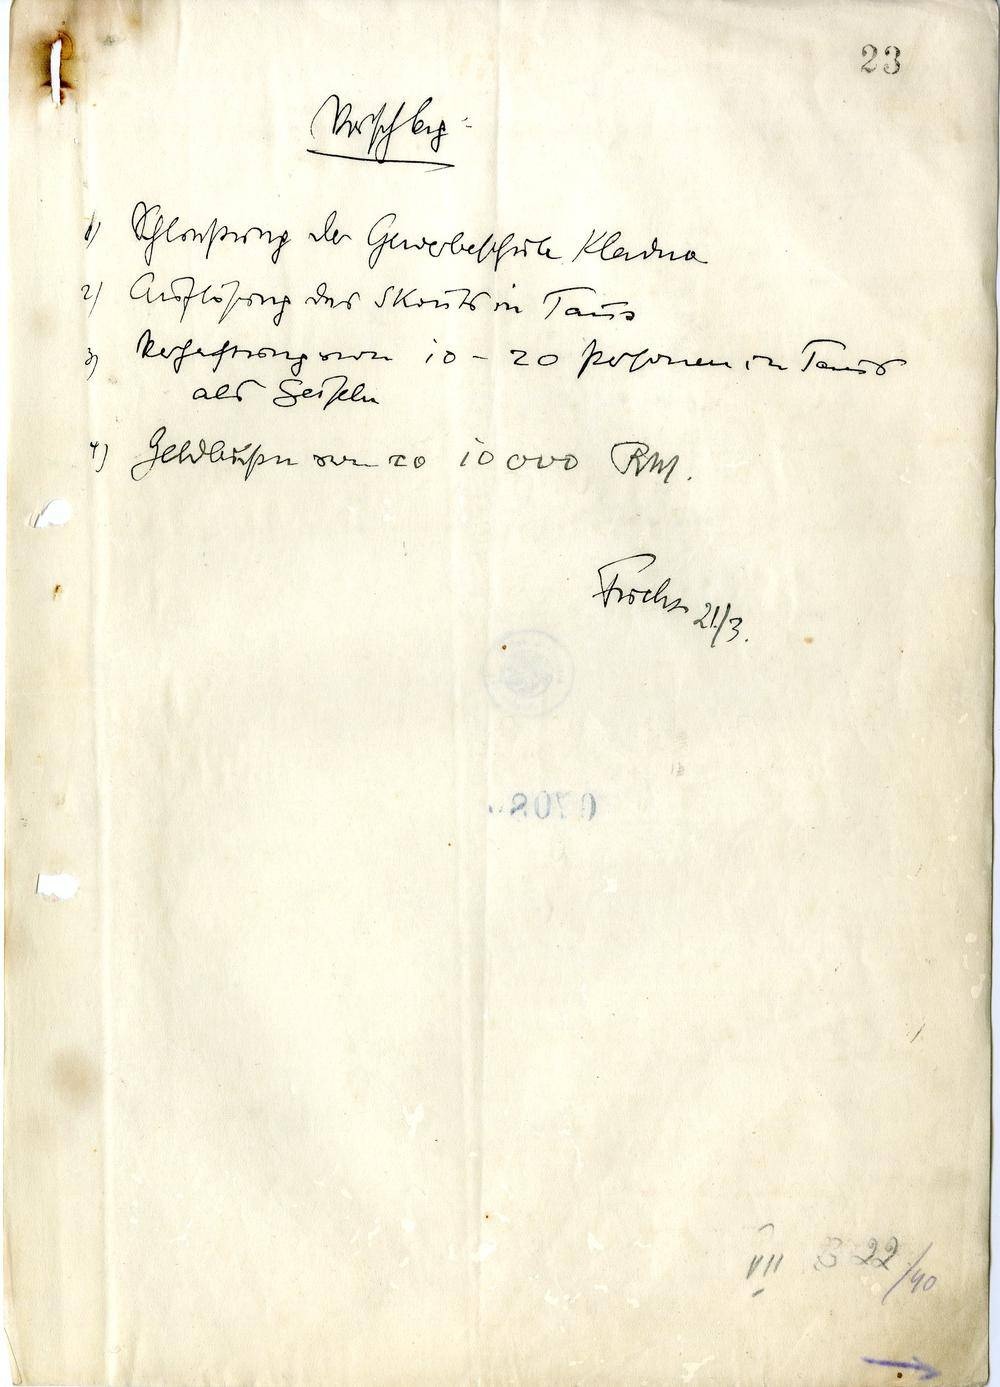 23
Vorschlag:
1) Schließung der Gewerbeschule Kladno
2) Auflösung des Skouts in Taus
3) Verhaftung von 10 - 20 Personen in Taus
als Geiseln
4) Geldbußen von 10 000 RM.
21/3.
0708
VII 22/40